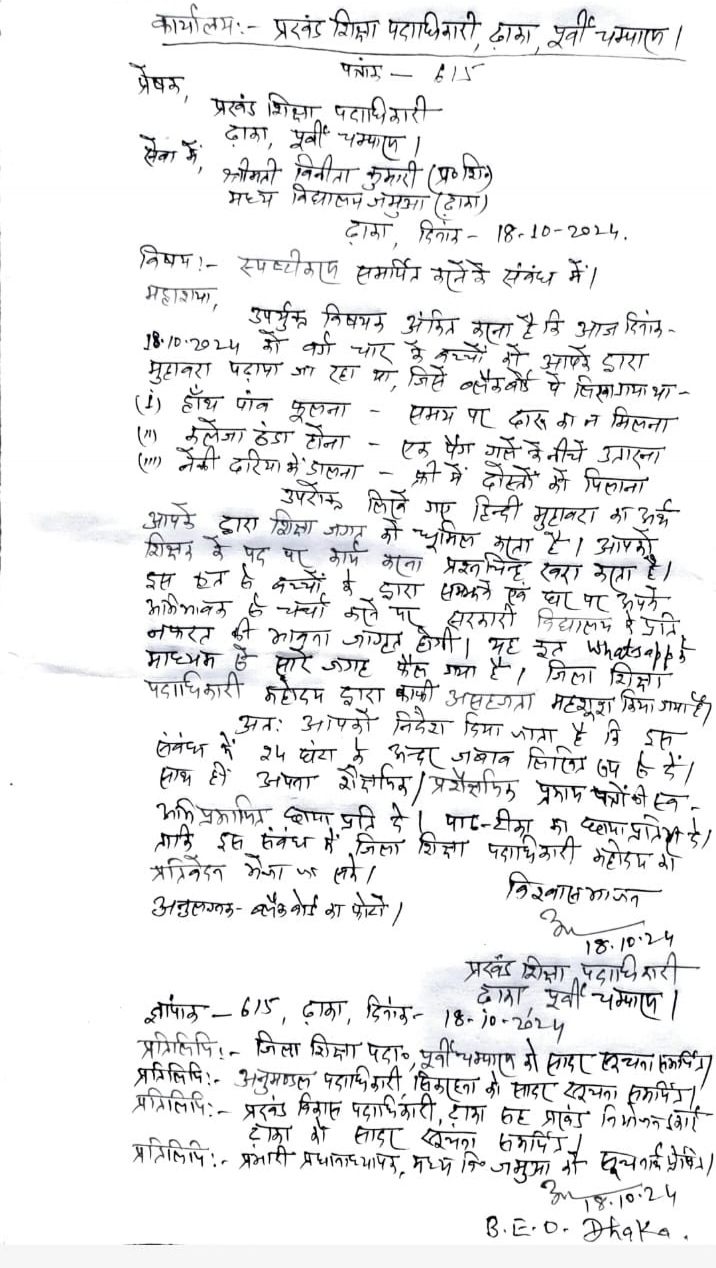 कार्यालय:- प्रखंड शिक्षा पदाधिकारी, ढाका, पूर्वी चम्पारण।
पत्रांक — 615
प्रेषक,
प्रखंड शिक्षा पदाधिकारी
ढाका, पूर्वी चम्पारण।
सेवा में,
श्रीमती विनीता कुमारी (प्र० शि०)
मध्य विद्यालय जमुआ (ढाका)
ढाका, दिनांक - 18-10-2024.
विषय:- स्पष्टीकरण समर्पित करने के संबंध में।
महाशया,
उपर्युक्त विषयक अंकित करना है कि आज दिनांक-
18.10.2024 को वर्ग चार के बच्चों को आपके द्वारा
मुहावरा पढ़ाया जा रहा था, जिसे ब्लैकबोर्ड पे लिखा गया था -
(i) हाँथ पांव फूलना - समय पर दारू का न मिलना
(ii) कलेजा ठंडा होना - एक पैग गले के नीचे उतारना
(iii) नेकी दरिया में डालना - फ्री में दोस्तों को पिलाना
उपरोक्त लिखे गए हिन्दी मुहावरा का अर्थ
आपके द्वारा शिक्षा जगत को धूमिल करता है। आपको
शिक्षक के पद पर कार्य करना प्रश्नचिन्ह खरा करता है।
इस कृत से बच्चों के द्वारा समझने एवं घर पर अपने
अभिभावक से चर्चा करने पर सरकारी विद्यालय के प्रति
नफरत की भावना जागृत होगी। यह कृत Whatsapp के
माध्यम से सारे जगह फैल गया है। जिला शिक्षा
पदाधिकारी महोदय द्वारा काफी असहजता महशूश किया गया है।
अतः आपको निदेश दिया जाता है कि इस
संबंध में 24 घंटा के अन्दर जबाब लिखित रूप से दें।
साथ ही अपना शैक्षणिक/प्रशैक्षणिक प्रमाण पत्रों की स्व-
अभिप्रमाणित छाया प्रति दे। पाठ-टीका का छाया प्रति भी दे।
ताकि इस संबंध में जिला शिक्षा पदाधिकारी महोदय को
प्रतिवेदन भेजा जा सके।
अनुलग्नक- ब्लैकबोर्ड का फोटो।
विश्वासभाजन
18.10.24
प्रखंड शिक्षा पदाधिकारी
ढाका, पूर्वी चम्पारण।
ज्ञापांक — 615, ढाका, दिनांक- 18-10-2024
प्रतिलिपि:- जिला शिक्षा पदा०, पूर्वी चम्पारण को सादर सूचना समर्पित।
प्रतिलिपि:- अनुमण्डल पदाधिकारी सिकरहना को सादर सूचना समर्पित।
प्रतिलिपि:- प्रखंड विकास पदाधिकारी, ढाका सह प्रखंड नियोजन इकाई
ढाका को सादर सूचना समर्पित।
प्रतिलिपि:- प्रभारी प्रधानाध्यापक, मध्य वि० जमुआ को सूचनार्थ प्रेषित।
18.10.24
B.E.O. Dhaka.